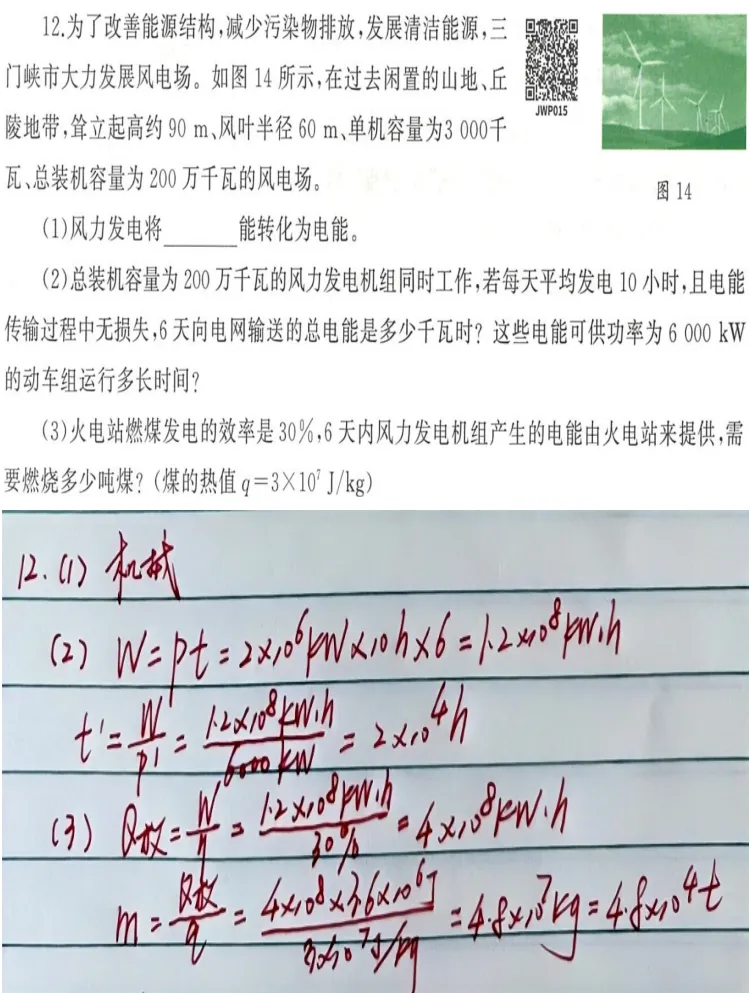 12.为了改善能源结构,减少污染物排放,发展清洁能源,三
门峡市大力发展风电场。如图 14 所示,在过去闲置的山地、丘
陵地带,耸立起高约 90 m、风叶半径 60 m、单机容量为3 000千
瓦、总装机容量为 200 万千瓦的风电场。
JWP015
图 14
(1)风力发电将______能转化为电能。
(2)总装机容量为 200 万千瓦的风力发电机组同时工作,若每天平均发电 10 小时,且电能
传输过程中无损失,6 天向电网输送的总电能是多少千瓦时? 这些电能可供功率为 6 000 kW
的动车组运行多长时间?
(3)火电站燃煤发电的效率是 30%,6 天内风力发电机组产生的电能由火电站来提供,需
要燃烧多少吨煤? (煤的热值 q=3×10⁷ J/kg)
12.(1) 机械
(2) W=Pt=2×10⁶kW×10h×6=1.2×10⁸kW·h
t'=W/P'=1.2×10⁸kW·h/6000kW=2×10⁴h
(3) Q放=W/η=1.2×10⁸kW·h/30%=4×10⁸kW·h
m=Q放/q=4×10⁸×3.6×10⁶J/3×10⁷J/kg=4.8×10⁷kg=4.8×10⁴t